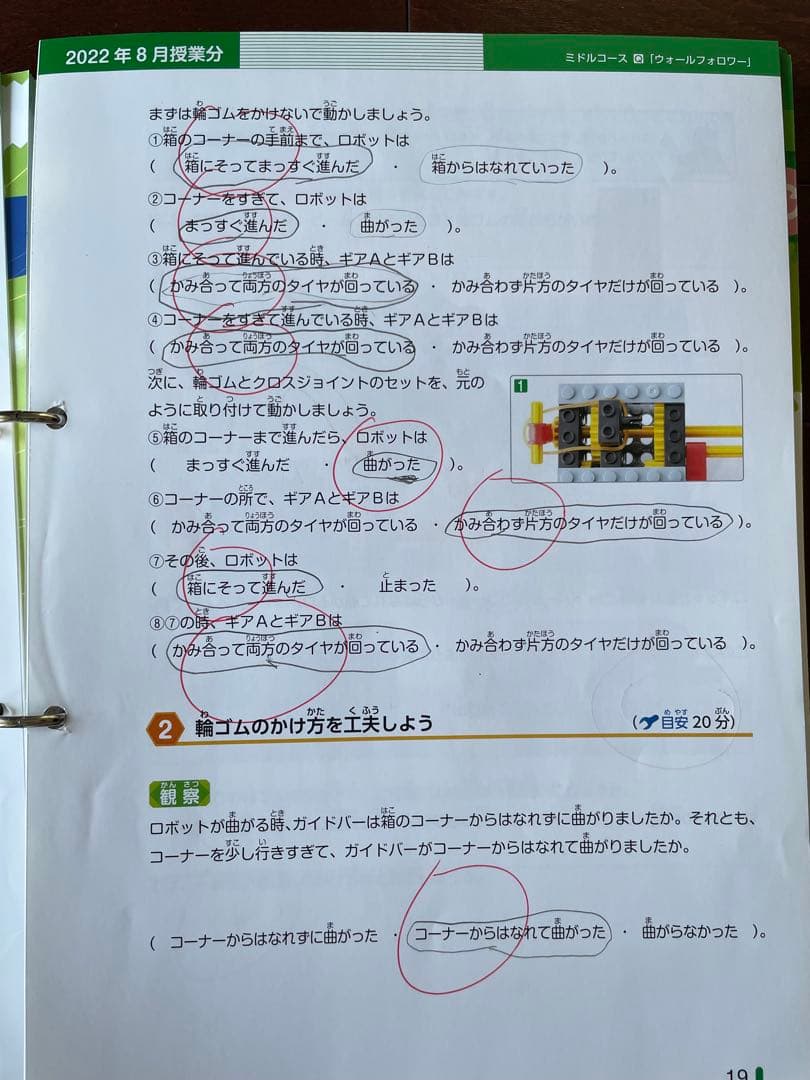 2022年8月授業分
ミドルコース Q「ウォールフォロワー」
まずは輪ゴムをかけないで動かしましょう。
①箱のコーナーの手前まで、ロボットは
( 箱にそってまっすぐ進んだ ・ 箱からはなれていった )。
②コーナーをすぎて、ロボットは
( まっすぐ進んだ ・ 曲がった )。
③箱にそって進んでいる時、ギアAとギアBは
( かみ合って両方のタイヤが回っている ・ かみ合わず片方のタイヤだけが回っている )。
④コーナーをすぎて進んでいる時、ギアAとギアBは
( かみ合って両方のタイヤが回っている ・ かみ合わず片方のタイヤだけが回っている )。
次に、輪ゴムとクロスジョイントのセットを、元の
ように取り付けて動かしましょう。
1
⑤箱のコーナーまで進んだら、ロボットは
( まっすぐ進んだ ・ 曲がった )。
⑥コーナーの所で、ギアAとギアBは
( かみ合って両方のタイヤが回っている ・ かみ合わず片方のタイヤだけが回っている )。
⑦その後、ロボットは
( 箱にそって進んだ ・ 止まった )。
⑧⑦の時、ギアAとギアBは
( かみ合って両方のタイヤが回っている ・ かみ合わず片方のタイヤだけが回っている )。
2 輪ゴムのかけ方を工夫しよう (目安20分)
観察
ロボットが曲がる時、ガイドバーは箱のコーナーからはなれずに曲がりましたか。それとも、
コーナーを少し行きすぎて、ガイドバーがコーナーからはなれて曲がりましたか。
( コーナーからはなれずに曲がった ・ コーナーからはなれて曲がった ・ 曲がらなかった )。
19